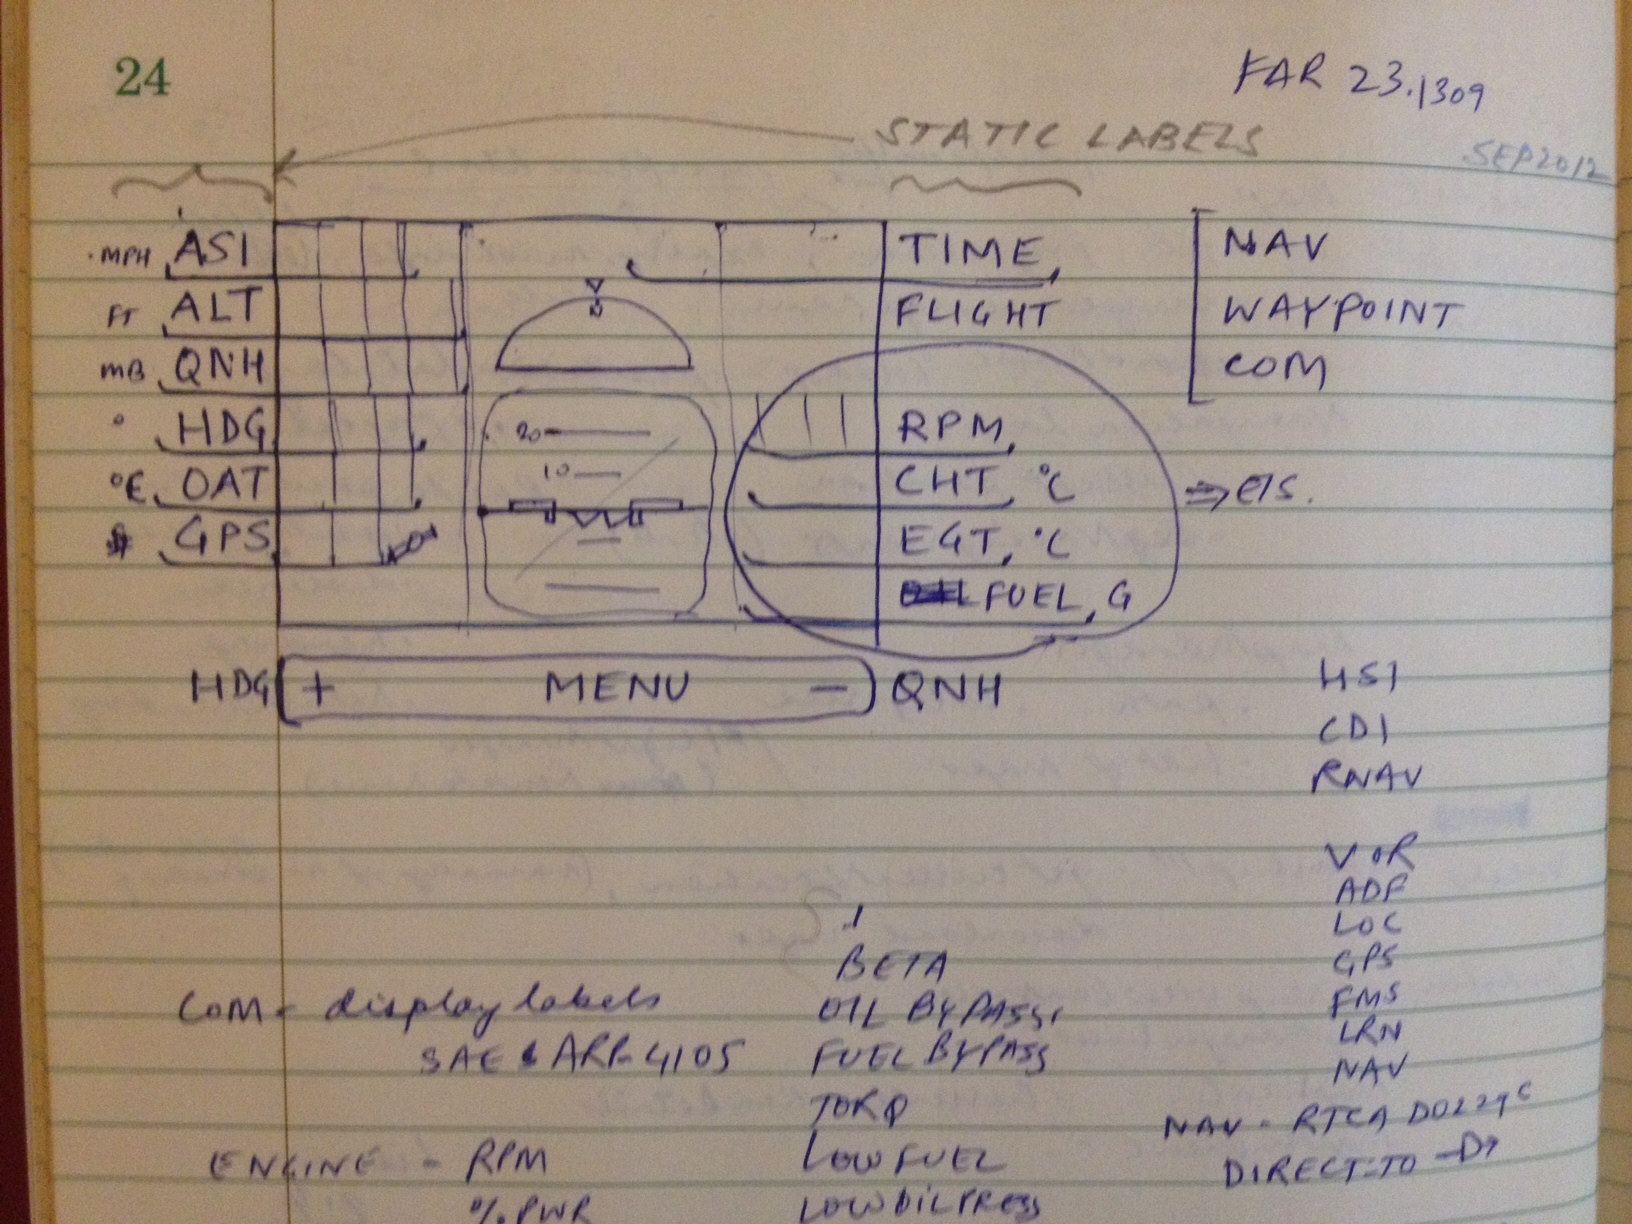 24
FAR 23.1309
STATIC LABELS
SEP 2012
MPH ASI
TIME
NAV
FT ALT
N
FLIGHT
WAYPOINT
MB QNH
COM
° HDG
20
RPM
°C OAT
10
CHT °C
⇒ EIS.
GPS
EGT °C
FUEL, G
HDG + MENU - QNH
HSI
CDI
RNAV
VOR
ADF
LOC
GPS
FMS
LRN
NAV
NAV - RTCA DO229C
DIRECT-TO -D
BETA
OIL BYPASS
FUEL BYPASS
TORQ
LOW FUEL
LOW OIL PRESS
COM - display labels
SAE ARP-4105
ENGINE - RPM
% PWR